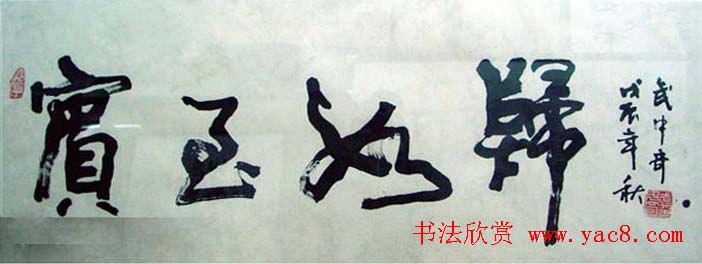 賓至如歸
戊辰年秋
武中奇
书法欣赏 www.yac8.com